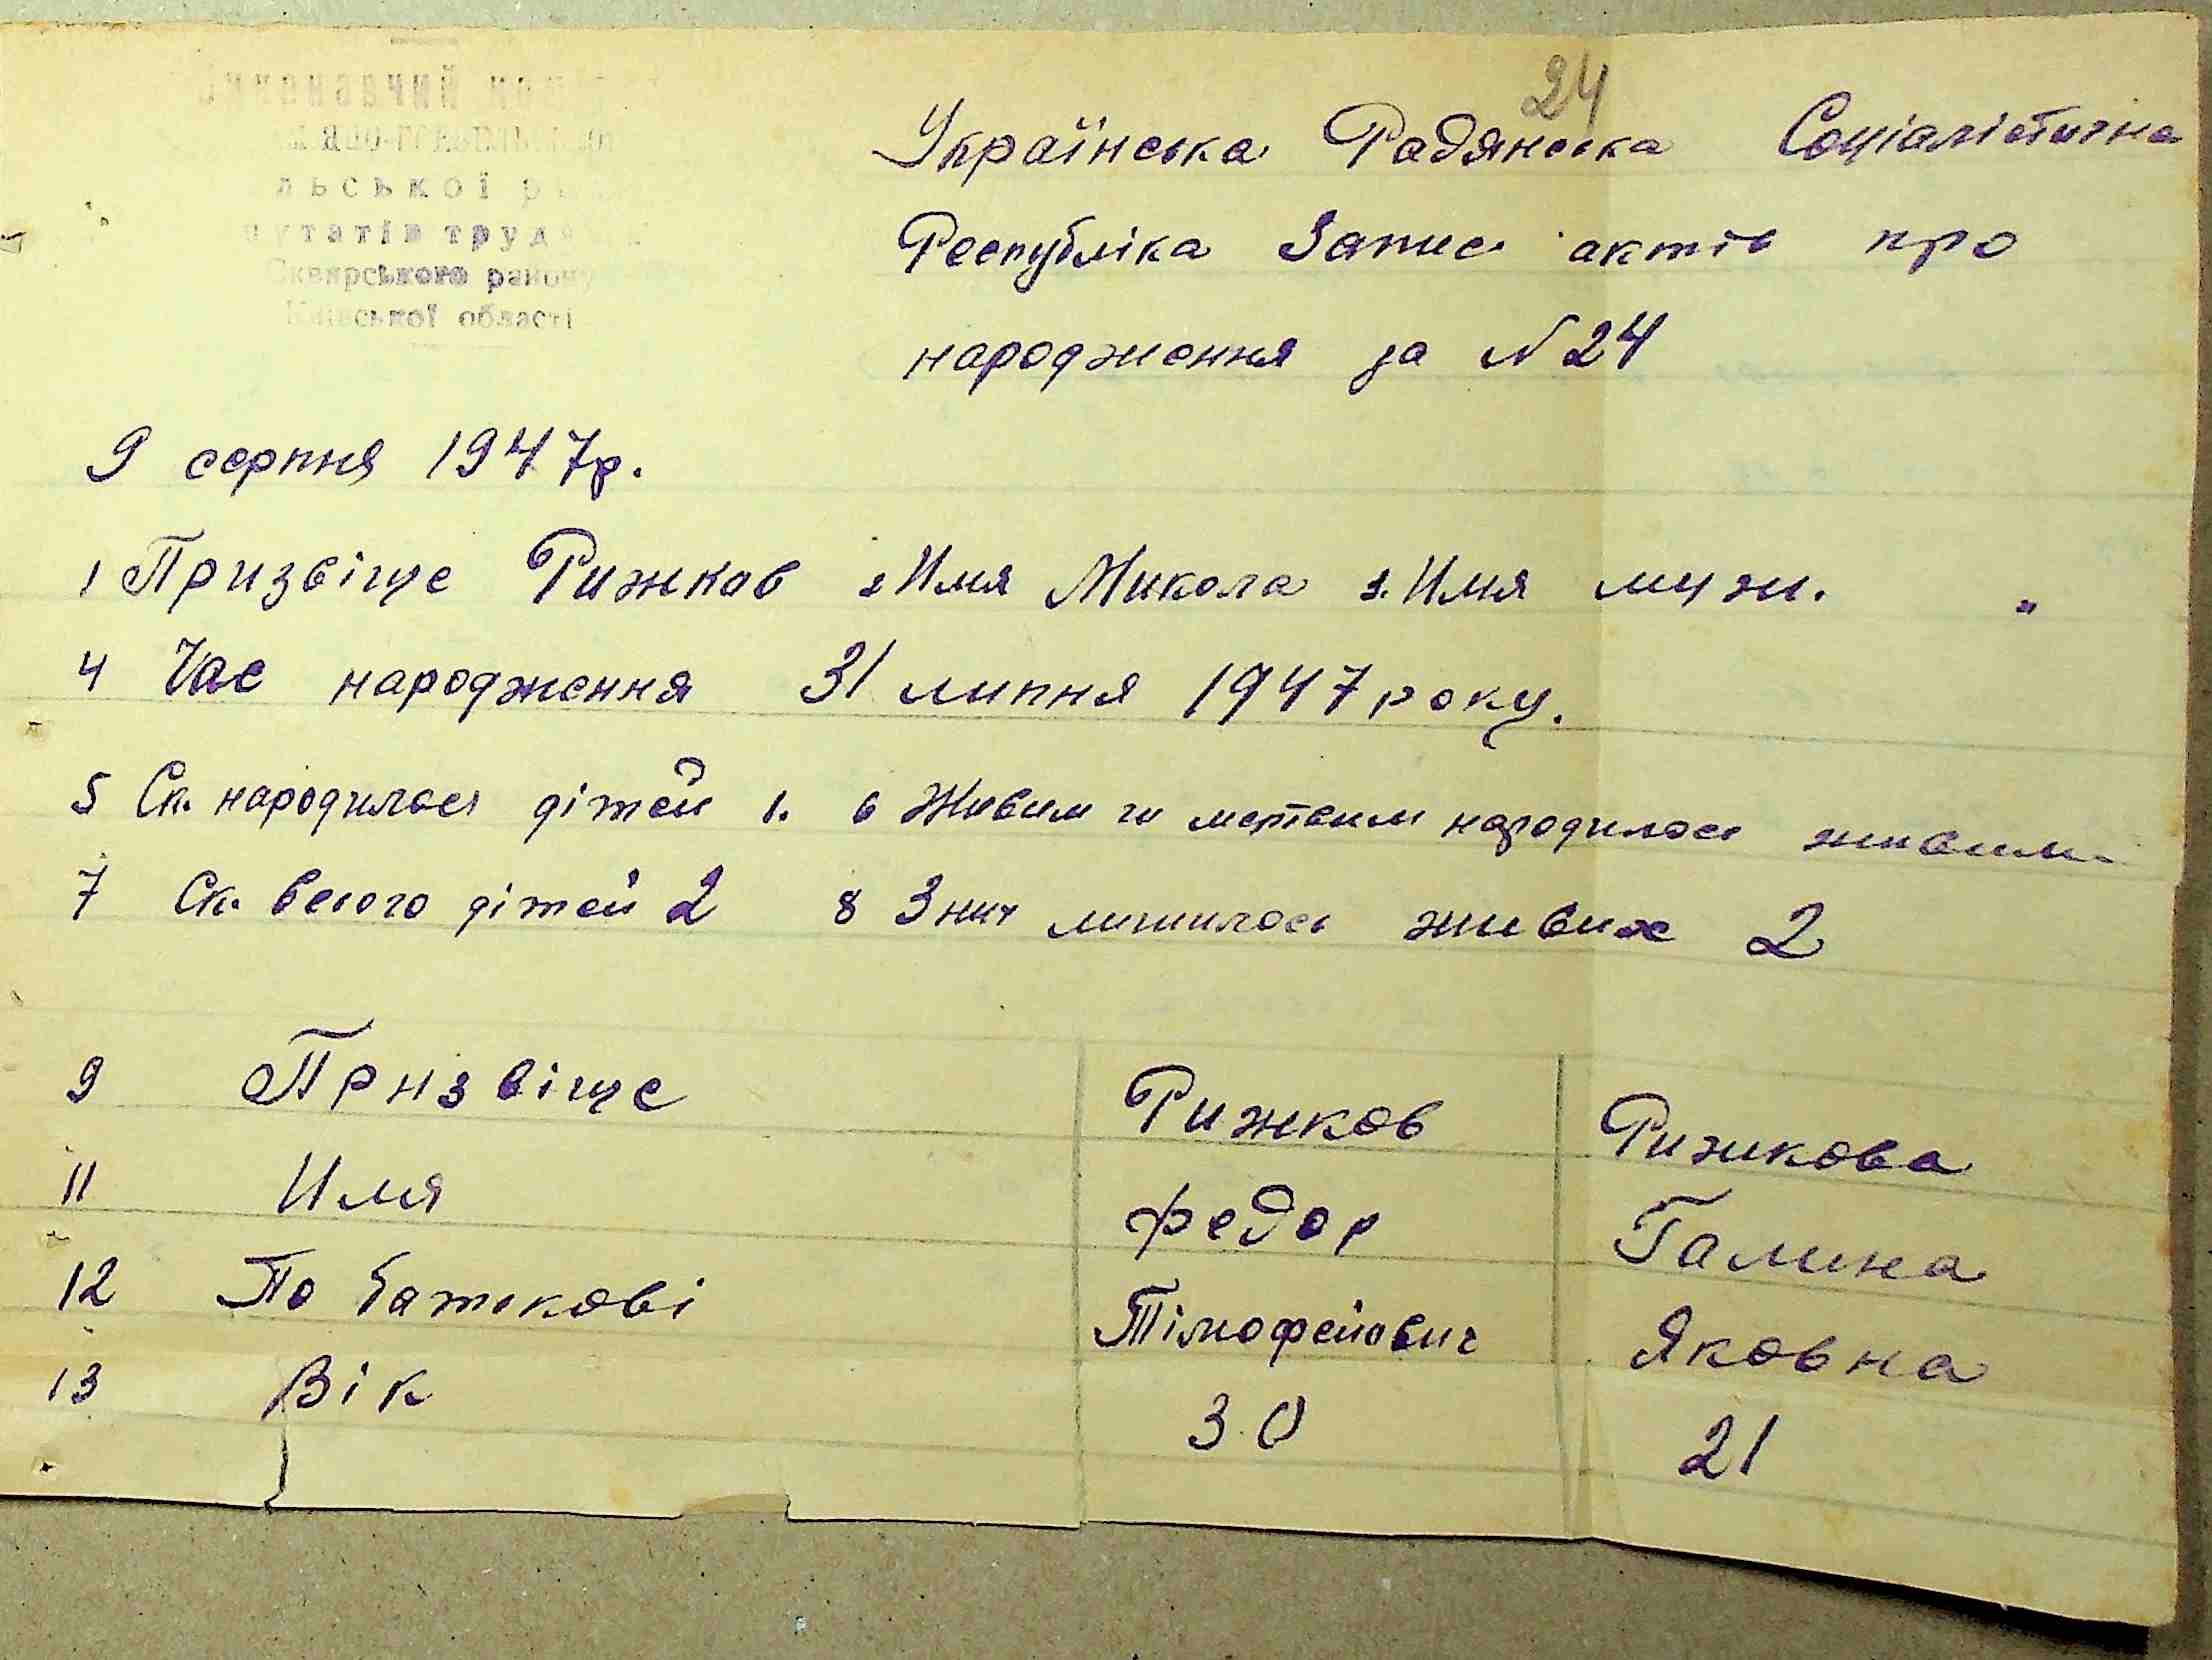 24
Виконавчий
льської
путатів труд
Сквирського району
Київської області
Українська Радянська Соціалістична
Республіка Запис актів про
народження за N 24
9 серпня 1947р.
1 Призвіще Рижков 2 Имя Микола 3. Имя муж. "
4 Час народження 31 липня 1947 року.
5 Ск. народилося дітей 1. 6 Живим чи мертвим народилось живим
7 Ск. всього дітей 2 8 З них лишилось живих 2
9 Призвіще Рижков Рижкова
11 Имя Федор Галина
12 По батькові Тімофейович Яковна
13 Вік 30 21